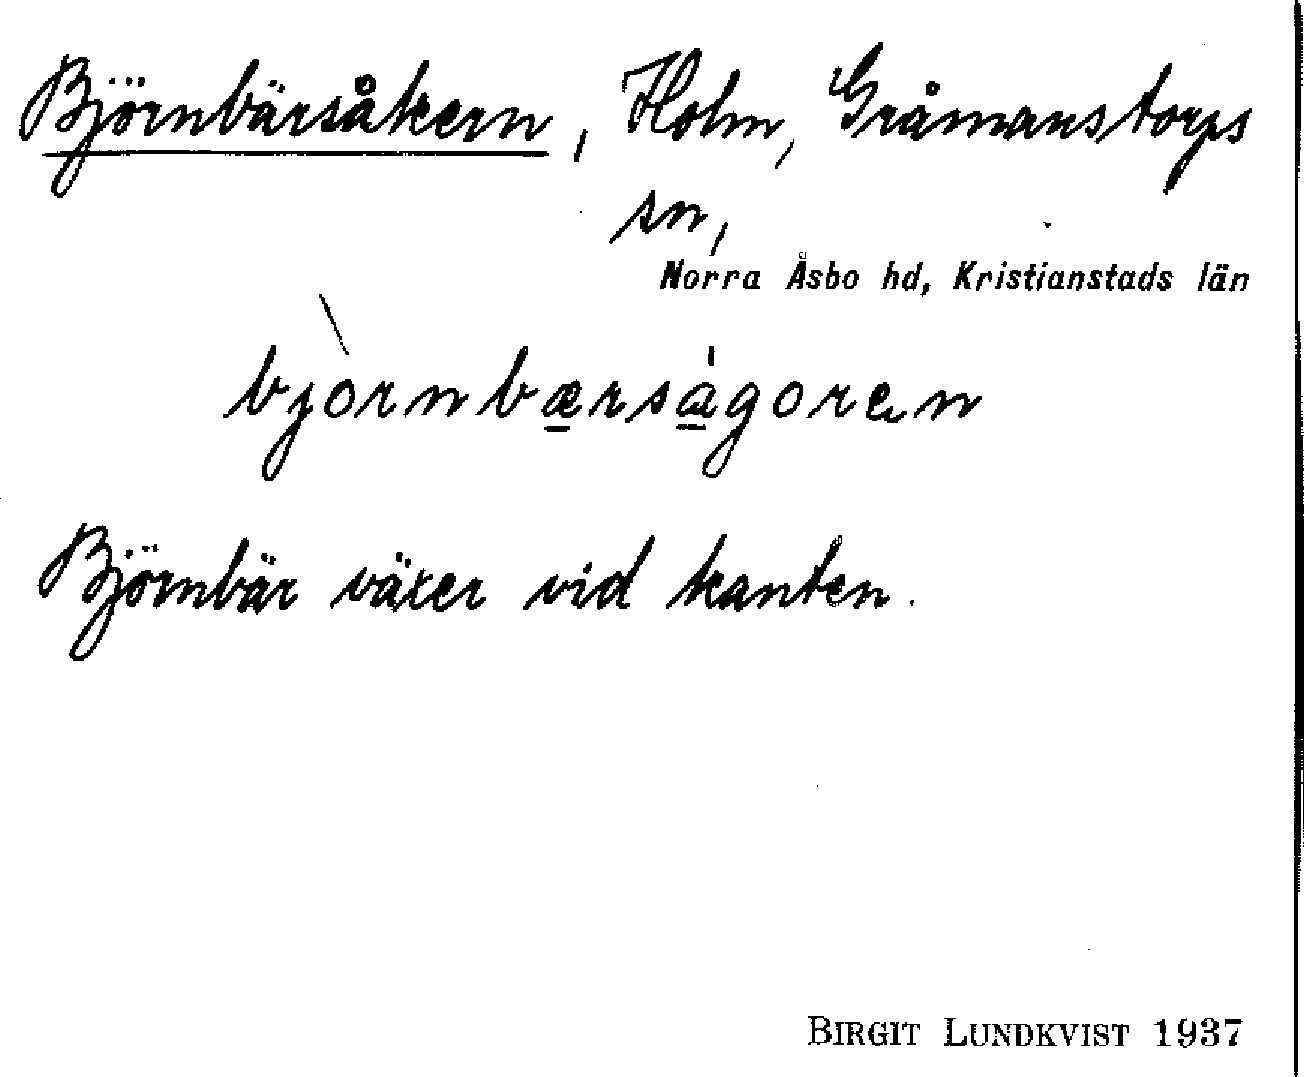 Björnbärsåkern, Holm, Gråmanstorps
sn,
Norra Åsbo hd, Kristianstads län
bjòrnbæ̲rsá̲goren
Björnbär växer vid kanten.
BIRGIT LUNDKVIST 1937